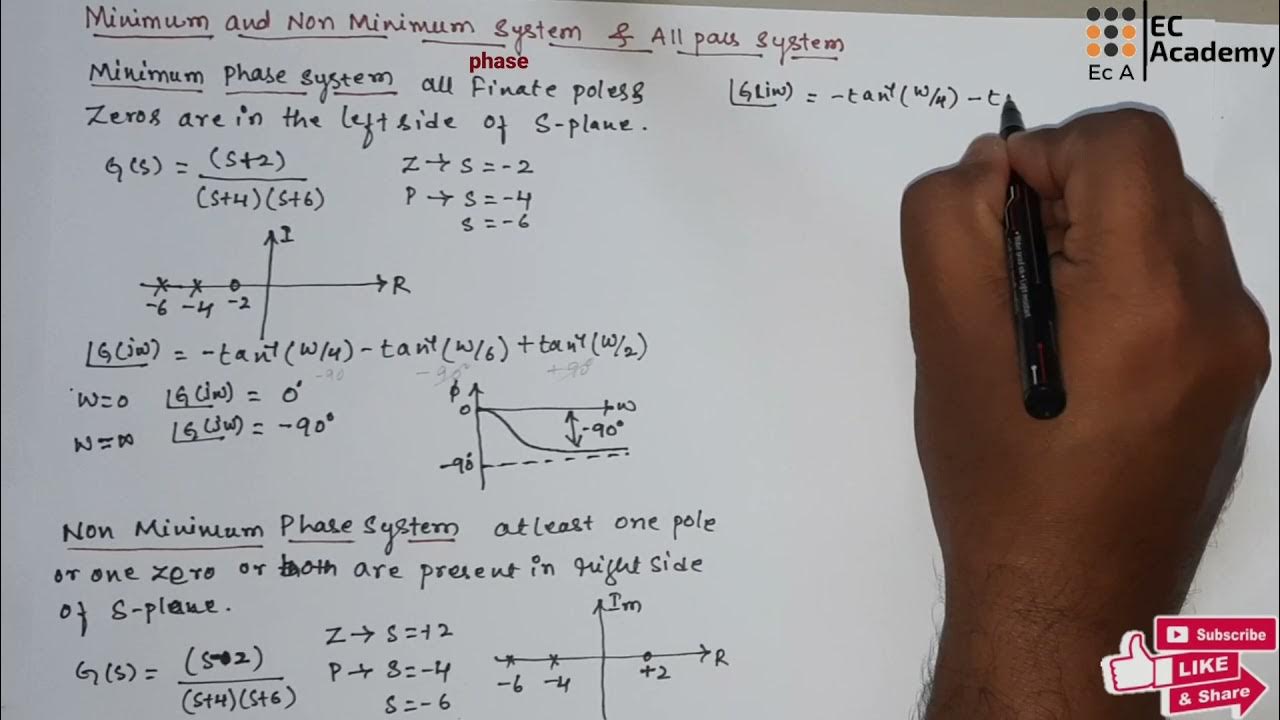 Minimum and Non Minimum System & All pass system
phase
EC Academy
Ec A
Minimum Phase system all Finate poles &
Zeros are in the left side of S-plane.
G(s) = (s+2) / (s+4)(s+6)
Z → s = -2
P → s = -4
s = -6
I
R
-6 -4 -2
∠G(jω) = -tan⁻¹(ω/4) - tan⁻¹(ω/6) + tan⁻¹(ω/2)
-90 -90 +90
ω=0 ∠G(jω) = 0°
ω=∞ ∠G(jω) = -90°
ϕ
0
ω
-90°
-90
Non Minimum Phase System atleast one pole
or one zero or both are present in right side
of S-plane.
G(s) = (s-2) / (s+4)(s+6)
Z → s = +2
P → s = -4
s = -6
Im
R
-6 -4 +2
∠G(jω) = -tan⁻¹(ω/4) - t
Subscribe
LIKE
& Share